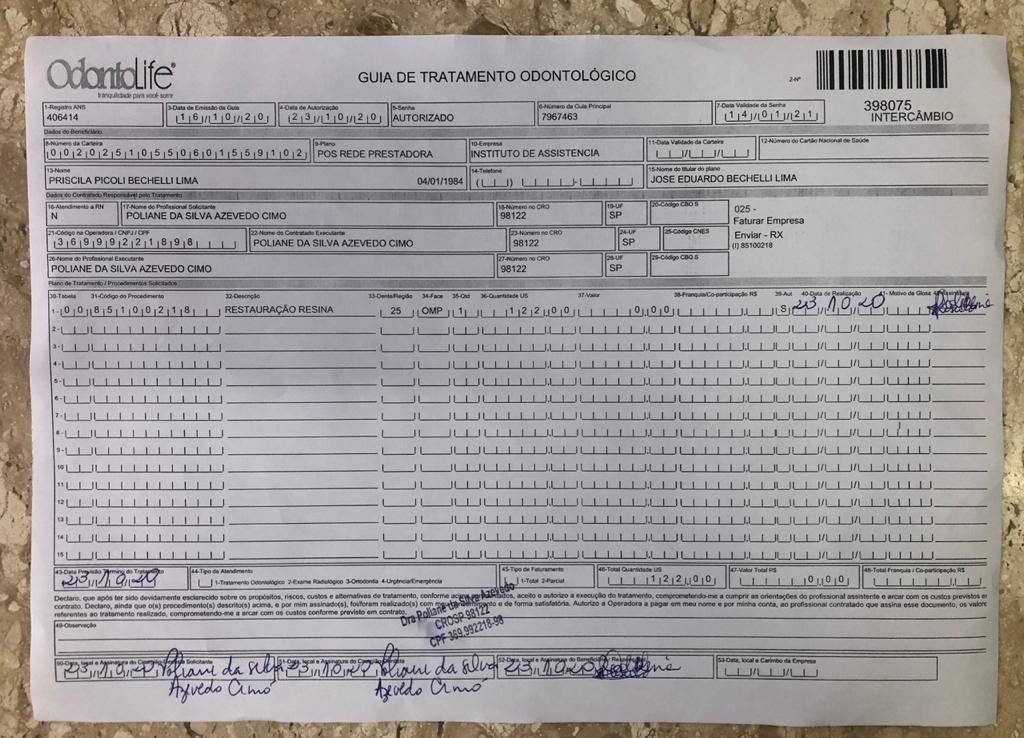 OdontoLife
tranquilidade para você sorrir
GUIA DE TRATAMENTO ODONTOLÓGICO
2-Nº
398075
INTERCÂMBIO
1-Registro ANS
406414
3-Data de Emissão da Guia
16/10/20
4-Data de Autorização
23/10/20
5-Senha
AUTORIZADO
6-Número da Guia Principal
7967463
7-Data Validade da Senha
14/01/21
Dados do Beneficiário
8-Número da Carteira
00202510550601559102
9-Plano
POS REDE PRESTADORA
10-Empresa
INSTITUTO DE ASSISTENCIA
11-Data Validade da Carteira
12-Número do Cartão Nacional de Saúde
13-Nome
PRISCILA PICOLI BECHELLI LIMA 04/01/1984
14-Telefone
15-Nome do titular do plano
JOSE EDUARDO BECHELLI LIMA
Dados do Contratado Responsável pelo Tratamento
16-Atendimento a RN
N
17-Nome do Profissional Solicitante
POLIANE DA SILVA AZEVEDO CIMO
18-Número no CRO
98122
19-UF
SP
20-Código CBO S
025 -
Faturar Empresa
Enviar - RX
(I) 85100218
21-Código na Operadora / CNPJ / CPF
36999221898
22-Nome do Contratado Executante
POLIANE DA SILVA AZEVEDO CIMO
23-Número no CRO
98122
24-UF
SP
25-Código CNES
26-Nome do Profissional Executante
POLIANE DA SILVA AZEVEDO CIMO
27-Número no CRO
98122
28-UF
SP
29-Código CBO S
Plano de Tratamento / Procedimentos Solicitados
30-Tabela 31-Código do Procedimento 32-Descrição 33-Dente/Região 34-Face 35-Qtd 36-Quantidade US 37-Valor 38-Franquia/Co-participação R$ 39-Aut 40-Data de Realização 41- Motivo da Glosa
1- 00 85100218 RESTAURAÇÃO RESINA 25 OMP 1 122,00 0,00 S 23/10/20
2-
3-
4-
5-
6-
7-
8-
9-
10
11
12
13
14
15
43-Data Previsão Término do Tratamento
23/10/20
44-Tipo de Atendimento
1-Tratamento Odontológico 2-Exame Radiológico 3-Ortodontia 4-Urgência/Emergência
45-Tipo de Faturamento
1-Total 2-Parcial
46-Total Quantidade US
122,00
47-Valor Total R$
0,00
48-Total Franquia / Co-participação R$
Declaro, que após ter sido devidamente esclarecido sobre os propósitos, riscos, custos e alternativas de tratamento, conforme acima, aceito e autorizo a execução do tratamento, comprometendo-me a cumprir as orientações do profissional assistente e arcar com os custos previstos em
contrato. Declaro, ainda que o(s) procedimento(s) descrito(s) acima, e por mim assinado(s), foi/foram realizado(s) com meu consentimento e de forma satisfatória. Autorizo a Operadora a pagar em meu nome e por minha conta, ao profissional contratado que assina esse documento, os valores
referentes ao tratamento realizado, comprometendo-me a arcar com os custos conforme previsto em contrato.
Dra Poliane da Silva Azevedo
CROSP 98122
CPF 369.992218-98
49-Observação
50-Data, local e Assinatura do Cirurgião-Dentista Solicitante
23/10/20 Poliani da Silva
Azevedo Cimo
51-Data, local e Assinatura do Cirurgião-Dentista
23/10/20 Poliani da Silva
Azevedo Cimo
52-Data, local e Assinatura do Beneficiário
23/10/20
53-Data, local e Carimbo da Empresa